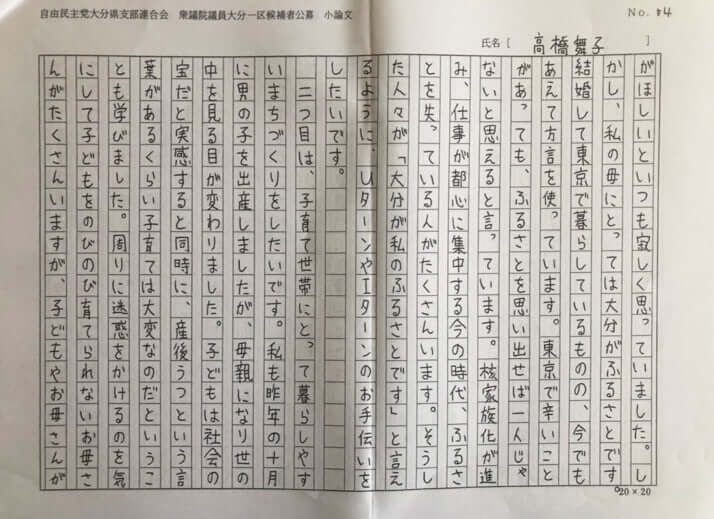 自由民主党大分県支部連合会　衆議院議員大分一区候補者公募　小論文
No. 4
氏名〔 高橋舞子 〕
がほしいといつも寂しく思っていました。し
かし、私の母にとっては大分がふるさとです。
結婚して東京で暮らしているものの、今でも
あえて方言を使っています。東京で辛いこと
があっても、ふるさとを思い出せば一人じゃ
ないと思えると言っています。核家族化が進
み、仕事が都心に集中する今の時代、ふるさ
とを失っている人がたくさんいます。そうし
た人々が「大分が私のふるさとです」と言え
るように、UターンやIターンのお手伝いを
したいです。
　二つ目は、子育て世帯にとって暮らしやす
いまちづくりをしたいです。私も昨年の十月
に男の子を出産しましたが、母親になり世の
中を見る目が変わりました。子どもは社会の
宝だと実感すると同時に、産後うつという言
葉があるくらい子育ては大変なのだというこ
とも学びました。周りに迷惑をかけるのを気
にして子どもをのびのび育てられないお母さ
んがたくさんいますが、子どもやお母さんが
20×20